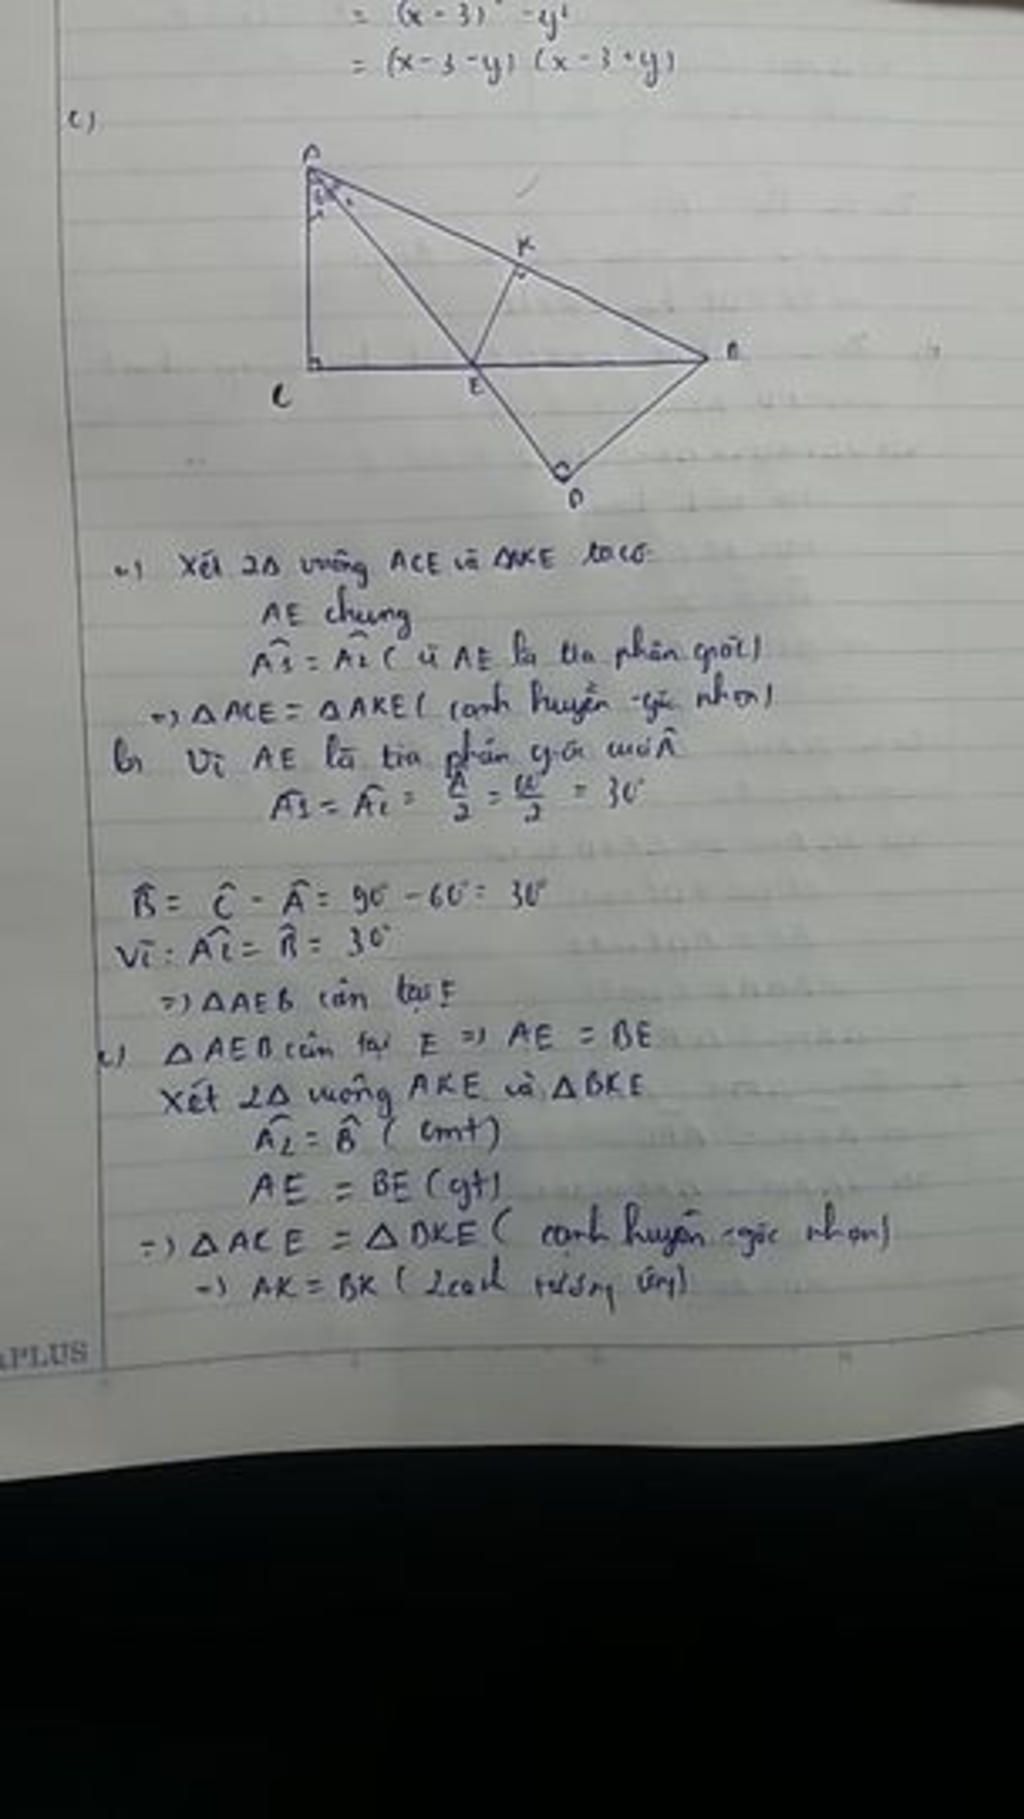 = (x - 3)² - y²
= (x - 3 - y) (x - 3 + y)
c)
A
K
B
C
E
D
a) Xét 2Δ vuông ACE và ΔAKE ta có
AE chung
Â1 = Â2 ( vì AE là tia phân giác)
=> Δ ACE = Δ AKE ( cạnh huyền - góc nhọn)
b, Vì AE là tia phân giác của Â
Â1 = Â2 = Â/2 = 60°/2 = 30°
B̂ = Ĉ - Â = 90° - 60° = 30°
Vì : Â2 = B̂ = 30°
=> Δ AEB cân tại E
c) Δ AEB cân tại E => AE = BE
Xét 2Δ vuông AKE và Δ BKE
Â2 = B̂ ( cmt)
AE = BE ( gt)
=> Δ ACE = Δ BKE ( cạnh huyền - góc nhọn)
=> AK = BK ( 2 cạnh tương ứng)
PLUS